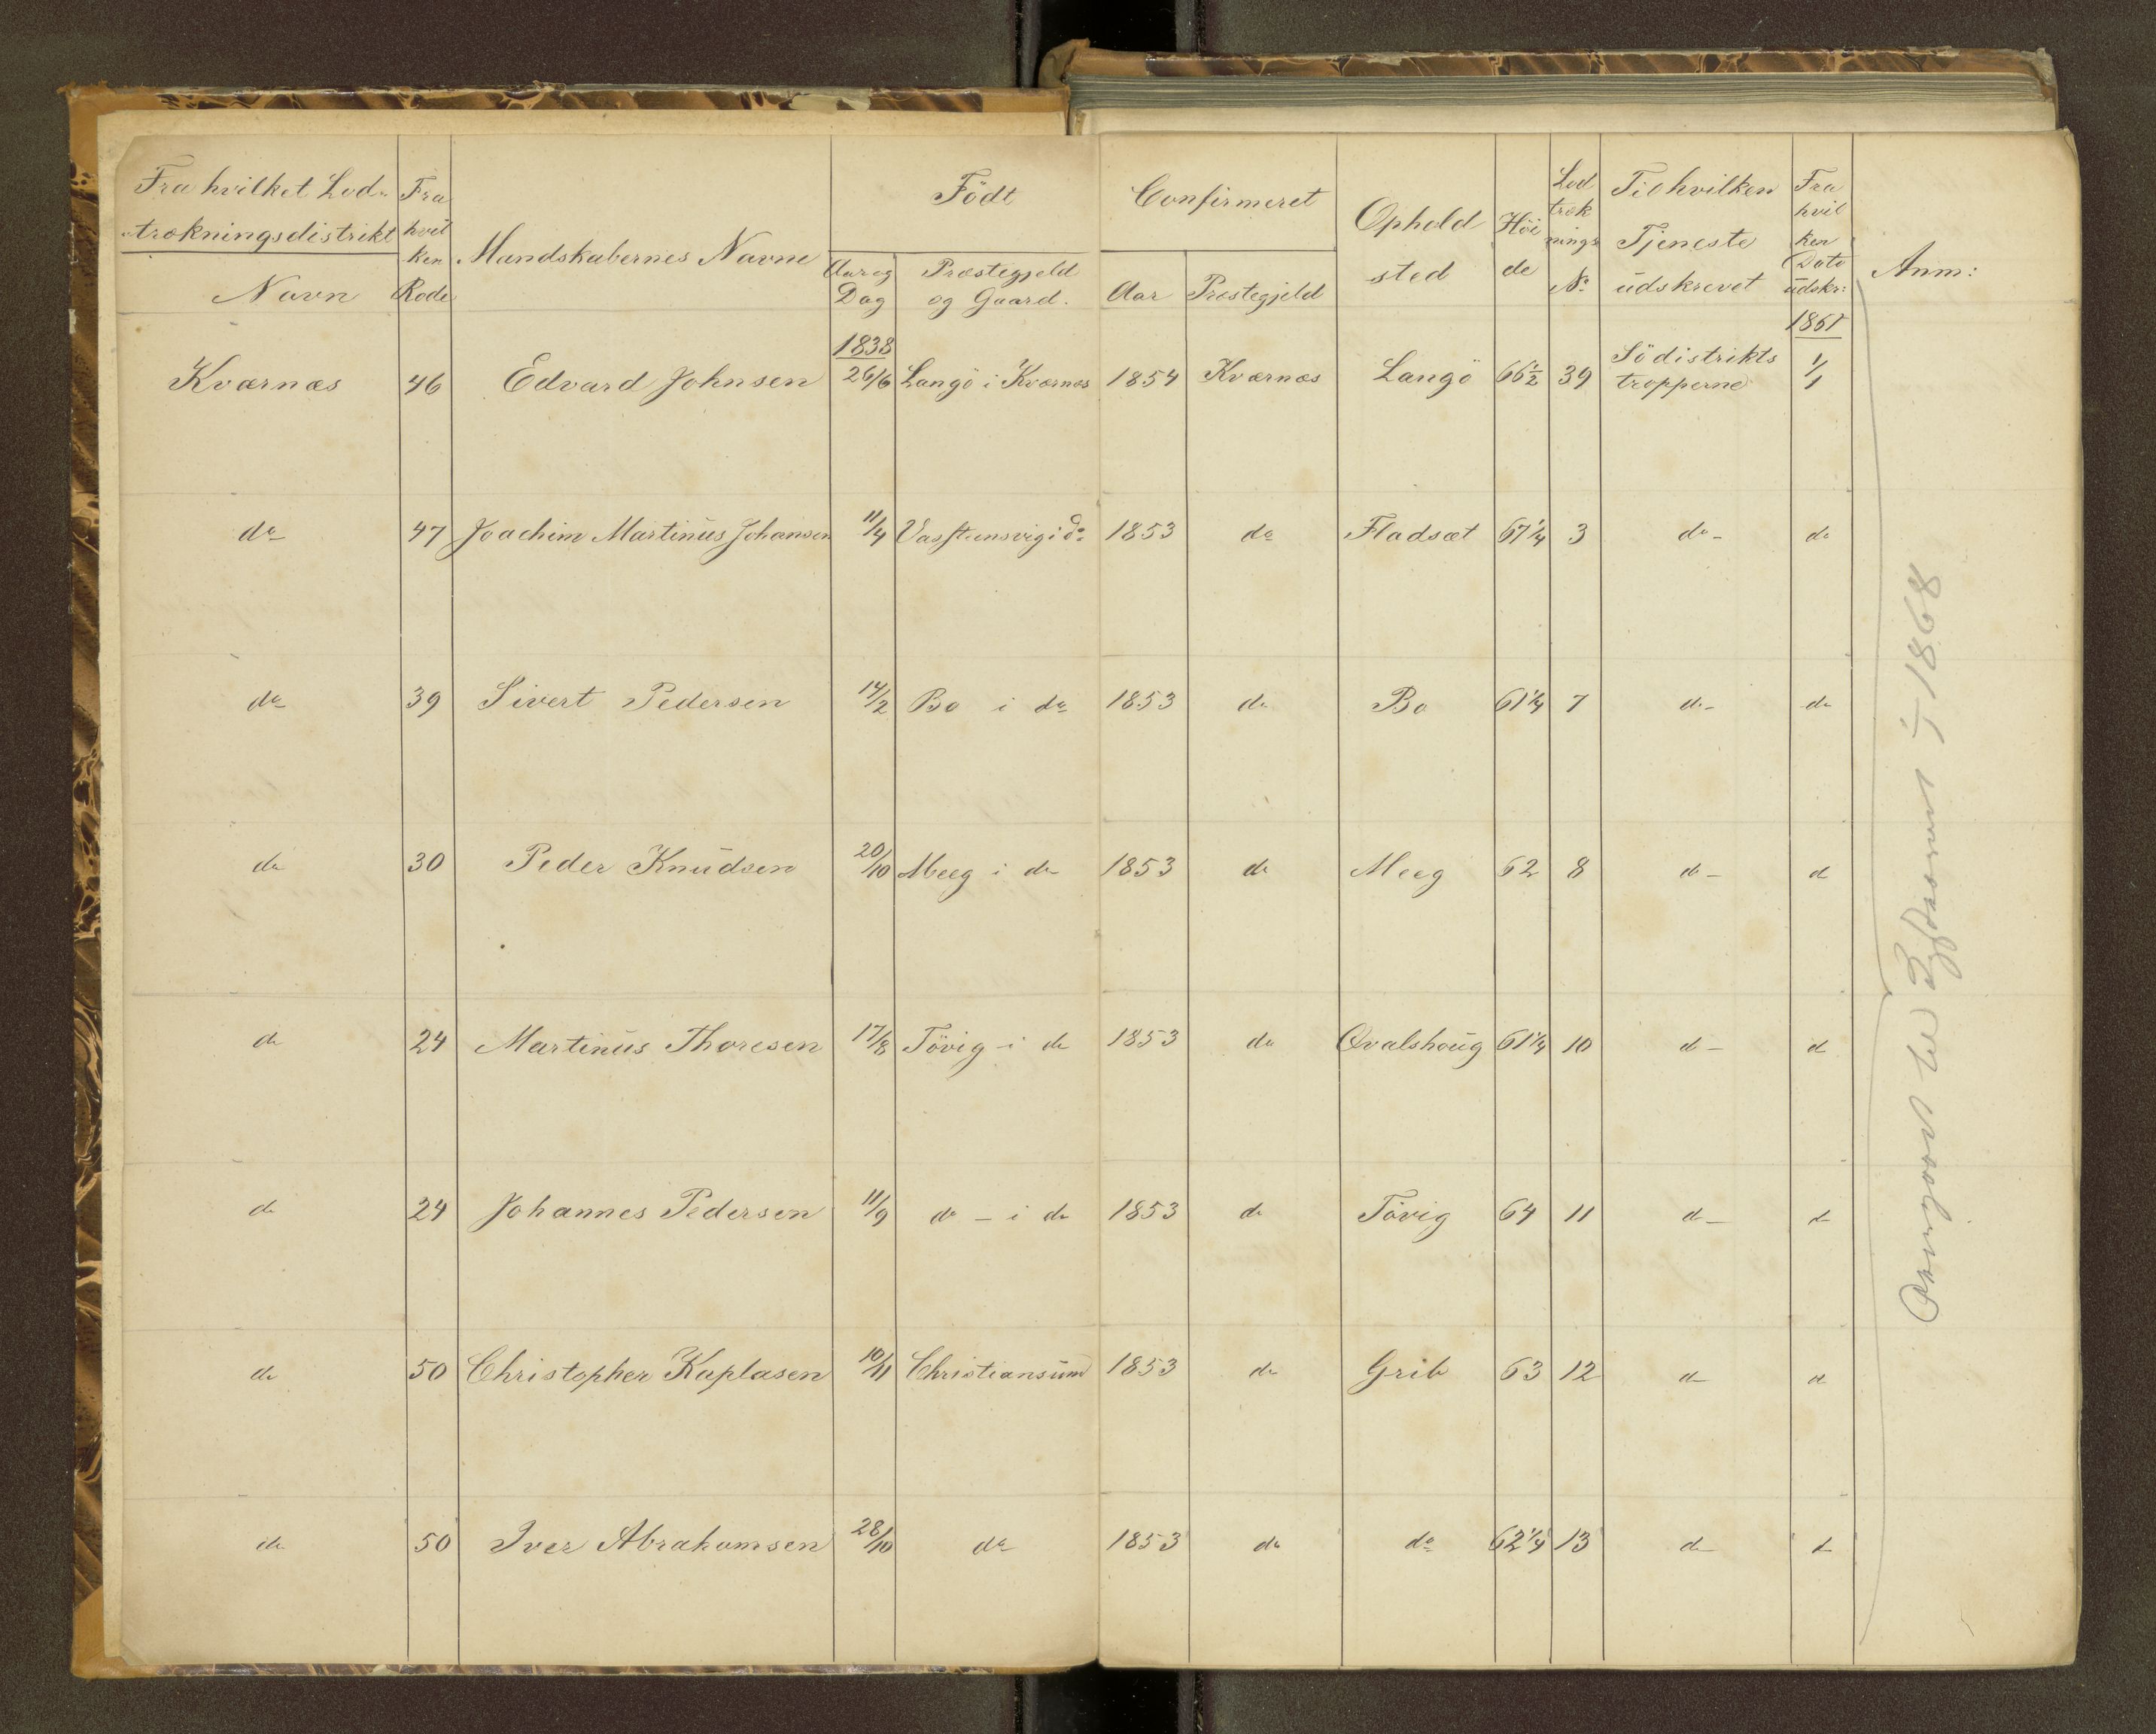 Fra hvilket Lod-
trækningsdistrikt
Navn
Fra
hvil
ken
Rode
Mandskabernes Navne
Födt
Aar og
Dag
Præstegjeld
og Gaard.
Confirmeret
Aar
Præstegjeld
Ophold
sted
Höi
de
Lod
træk
nings
No
Til hvilken
Tjeneste
üdskrevet
Fra
hvil
ken
Dato
üdskr:
Anm:
1838
1861
Kværnæs 46 Edvard Johnsen 26/6 Langö i Kværnæs 1854 Kværnæs Langö 66½ 39 Södistrikts 1/1
tropperne
do 47 Joachim Martinüs Johansen 11/4 i do 1853 do Fladsæt 67¼ 3 do do
do 39 Sivert Pedersen 14/2 Bo i do 1853 do Bo 61¼ 7 do do
do 30 Peder Knüdsen 20/10 Meeg i do 1853 do Meeg 62 8 do d
do 24 Martinüs Thoresen 17/8 Tövig i do 1853 do Qvalshoüg 61¼ 10 d d
do 24 Johannes Pedersen 11/9 do - i do 1853 do Tövig 64 11 d d
do 50 Christopher Kaplasen 10/11 Christiansünd 1853 do Grib 63 12 d d
do 50 Iver Abrahamsen 28/10 do 1853 do do 62¼ 13 d d
1868